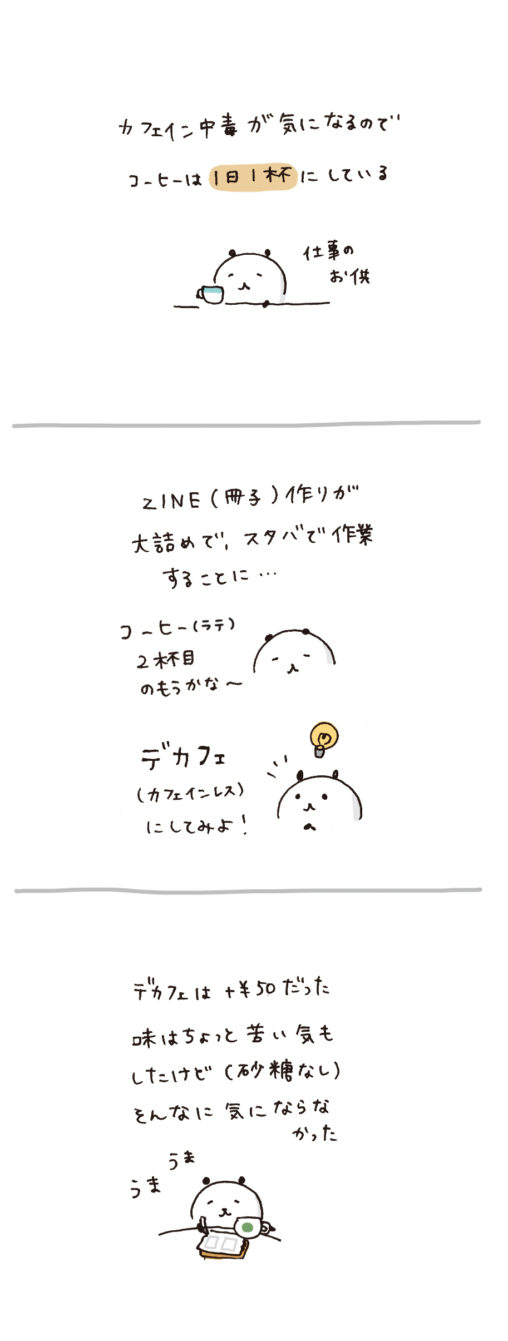 カフェイン中毒が気になるので
コーヒーは1日1杯にしている
仕事の
お供
ZINE(冊子)作りが
大詰めで、スタバで作業
することに…
コーヒー(ラテ)
2杯目
のもうかな〜
デカフェ
(カフェインレス)
にしてみよ!
デカフェは+¥50だった
味はちょっと苦い気も
したけど(砂糖なし)
そんなに気にならな
かった
うま
うま